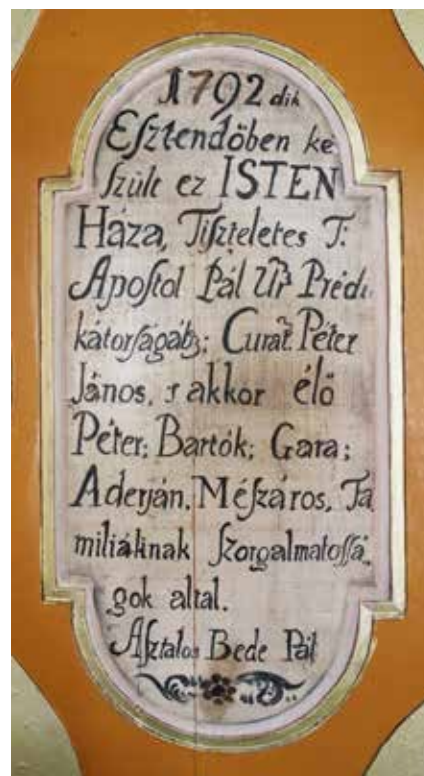 1792 dik
Eſztendőben ké
ſzült ez ISTEN
Háza, Tiſzteletes T:
Apoſtol Pál Ur Prédi
kátorſágáb; Curat. Péter
János, s akkor élő
Péter; Bartók; Gara;
Aderján, Méſzáros, Fa
miliáknak ſzorgalmatoſſá,
gok altal.
Aſztalos Bede Pál